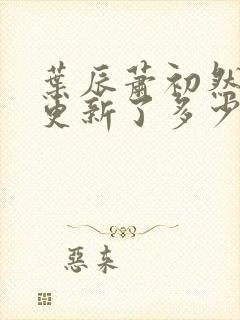 葉辰蕭初然
更新了多少
惡來